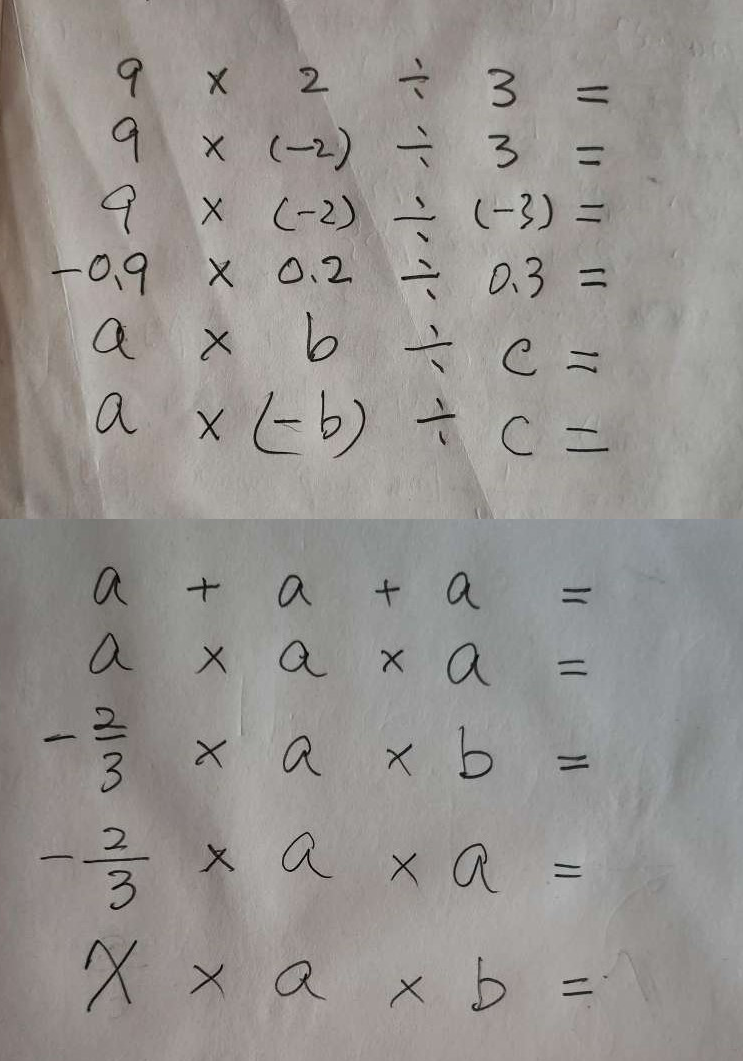 9 × 2 ÷ 3 =
9 × (-2) ÷ 3 =
9 × (-2) ÷ (-3) =
-0.9 × 0.2 ÷ 0.3 =
a × b ÷ c =
a × (-b) ÷ c =
a + a + a =
a × a × a =
-2/3 × a × b =
-2/3 × a × a =
x × a × b =